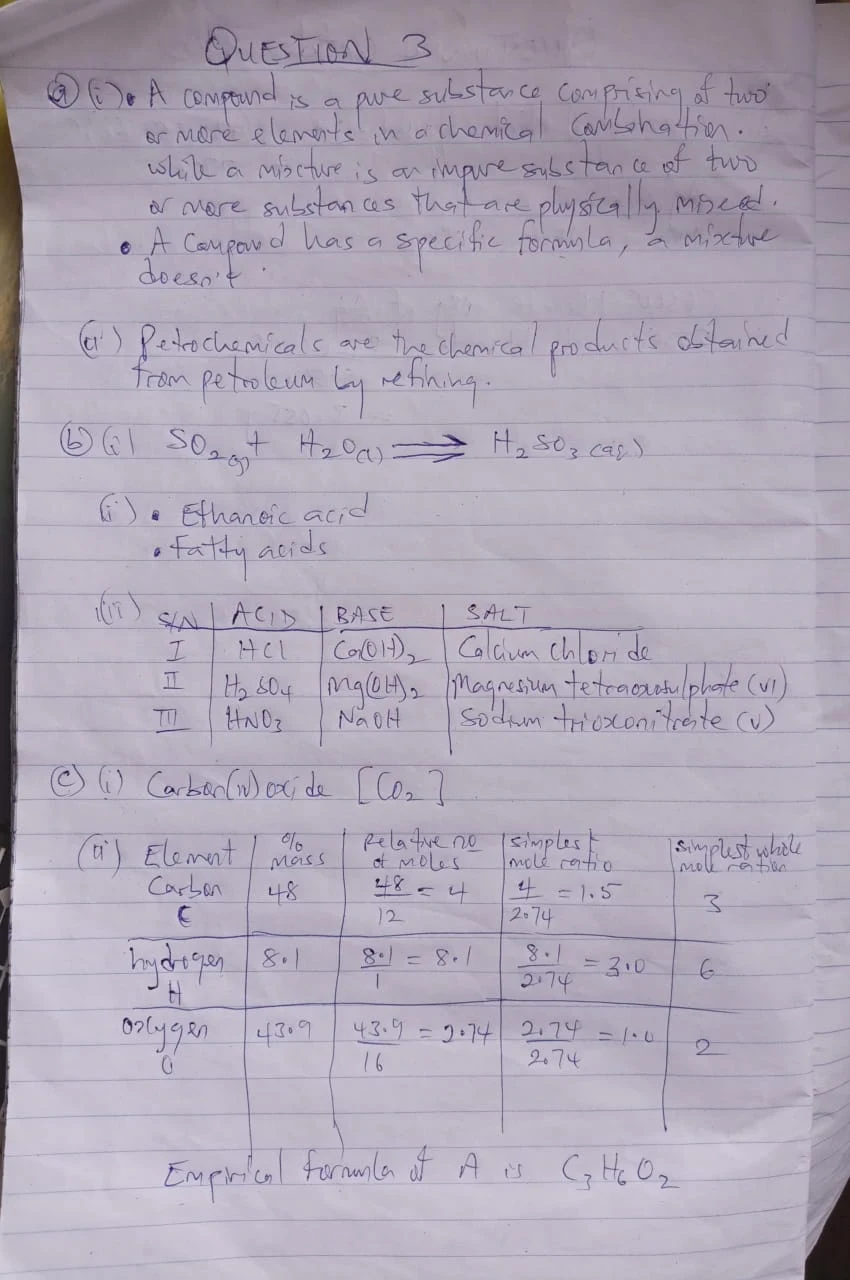 QUESTION 3
(a) (i) • A compound is a pure substance comprising of two
or more elements in a chemical combination.
while a mixture is an impure substance of two
or more substances that are physically mixed.
• A Compound has a specific formula, a mixture
doesn't.
(ii) Petrochemicals are the chemical products obtained
from petroleum by refining.
(b) (i) SO₂(g) + H₂O(l) ⇌ H₂SO₃(aq)
(ii) • Ethanoic acid
• Fatty acids
(iii) S/N | ACID | BASE | SALT
I | HCl | Ca(OH)₂ | Calcium chloride
II | H₂SO₄ | Mg(OH)₂ | Magnesium tetraoxosulphate (VI)
III | HNO₃ | NaOH | Sodium trioxonitrate (V)
(c) (i) Carbon(iv)oxide [CO₂]
(ii) Element | % Mass | Relative no of moles | Simplest mole ratio | Simplest whole mole ration
Carbon C | 48 | 48/12 = 4 | 4/2.74 = 1.5 | 3
hydrogen H | 8.1 | 8.1/1 = 8.1 | 8.1/2.74 = 3.0 | 6
oxygen O | 43.9 | 43.9/16 = 2.74 | 2.74/2.74 = 1.0 | 2
Empirical formula of A is C₃H₆O₂